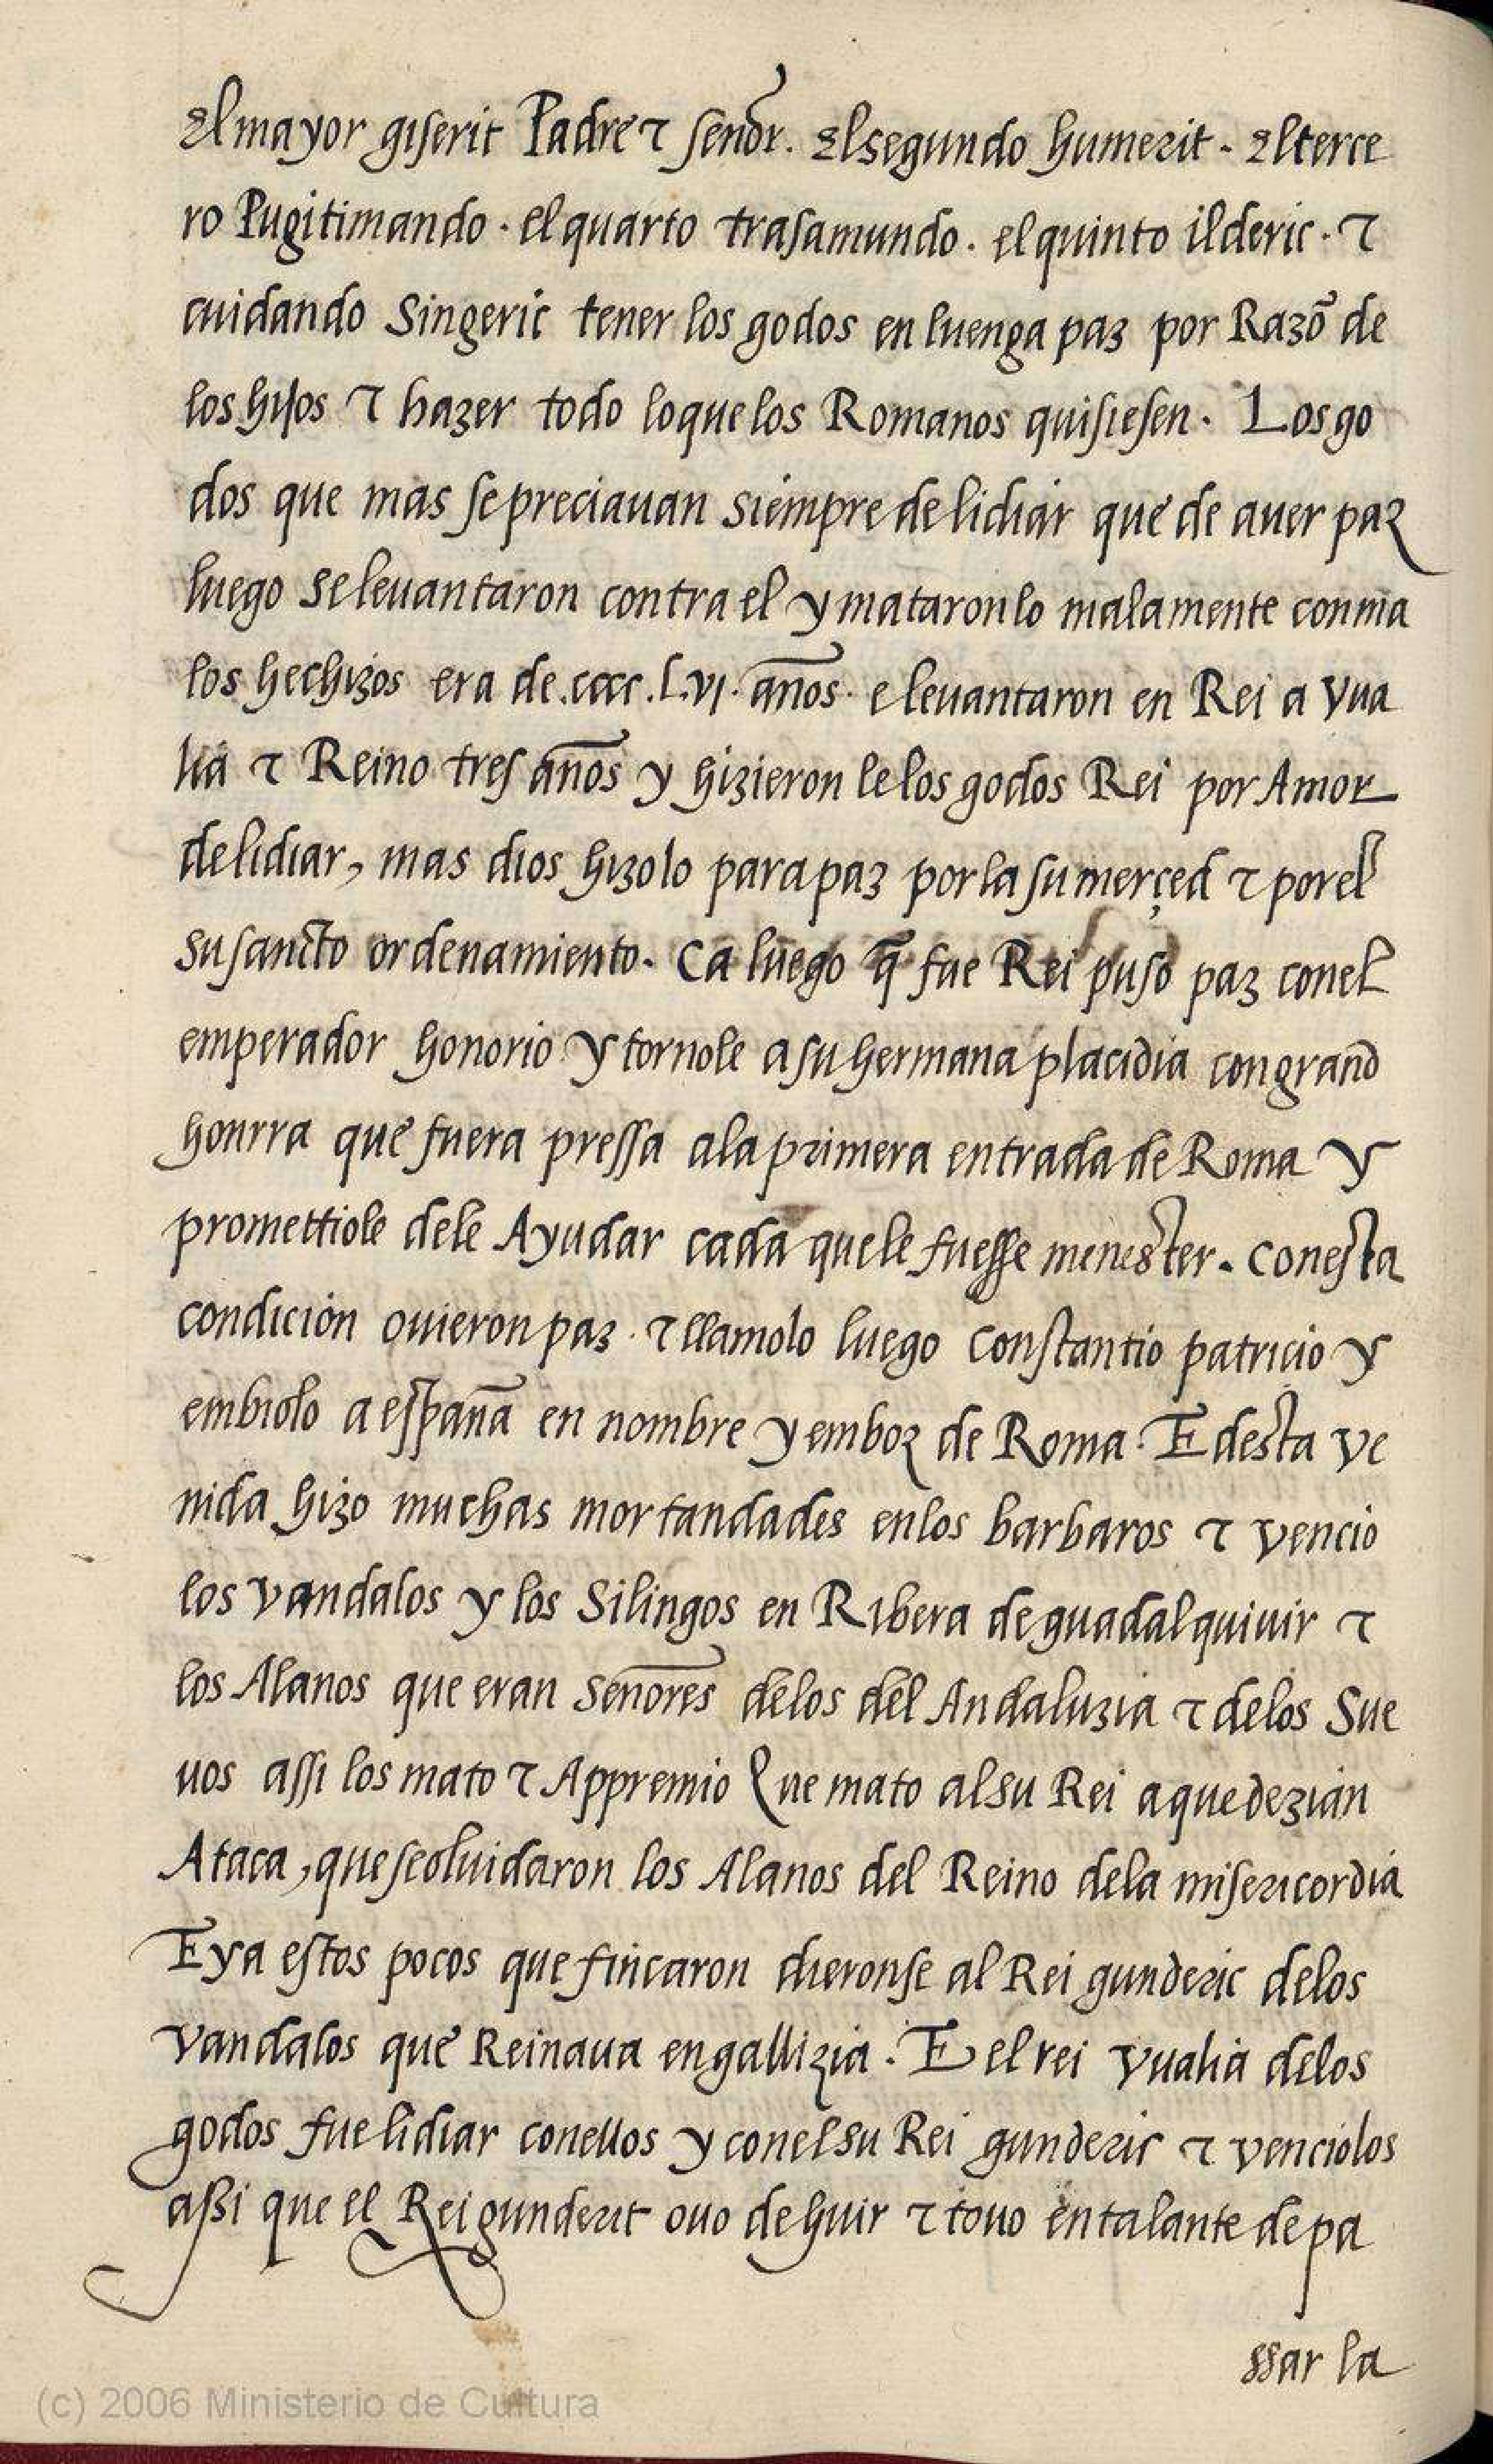 El mayor giserit Padre τ señor. El segundo humerit. El terce
ro Pugitimando. el quarto trasamundo. el quinto ilderic. τ
cuidando Singeric tener los godos en luenga paz por Razō de
los hijos τ hazer todo lo que los Romanos quisiesen. Los go
dos que mas se preciauan siempre de lidiar que de auer paz
luego se leuantaron contra el y mataronlo malamente con ma
los hechizos era de .cccc.L.vj. años. e leuantaron en Rei a Vua
lia τ Reino tres años y hizieron le los godos Rei por Amor
de lidiar, mas dios hizolo para paz por la su merçed τ por el
su sancto ordenamiento. Ca luego q̄ fue Rei puso paz con el
emperador honorio y tornole a su hermana placidia con grand
honrra que fuera pressa a la primera entrada de Roma y
promettiole dele Ayudar cada que le fuesse menester. Con esta
condicion ouieron paz. τ llamolo luego Constantio patricio y
embiolo a españa en nombre y em boz de Roma. E desta ve
nida hizo muchas mortandades en los barbaros τ vencio
los vandalos y los Silingos en Ribera de guadalquiuir τ
los Alanos que eran señores delos del Andaluzia τ delos Sue
uos assi los mato τ Appremio Que mato al su Rei a que dezian
Ataca, que se oluidaron los Alanos del Reino dela misericordia
E ya estos pocos que fincaron dieronse al Rei gunderic delos
vandalos que Reinaua en gallizia. E el rei Vualia delos
godos fue lidiar con ellos y con el su Rei gunderic τ venciolos
assi que el Rei gunderit ouo de huir τ touo en talante de pa
ssar la
(c) 2006 Ministerio de Cultura